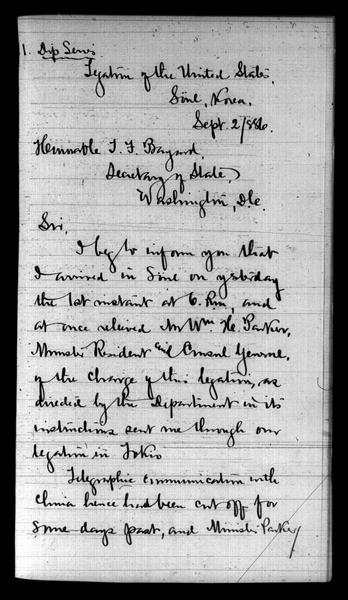 1. Dip Series
Legation of the United States,
Söul, Korea,
Sept. 2/886.
Honorable T. F. Bayard,
Secretary of State,
Washington, D.C.
Sir,
I beg to inform you that
I arrived in Söul on yesterday
the 1st instant at 6. P.m., and
at once relieved Mr Wm. H. Parker,
Minister Resident and Consul General,
of the charge of this legation, as
directed by the Department in its
instructions sent me through our
legation in Tokio
Telegraphic communication with
China hence had been cut off for
some days past, and Minister Parker